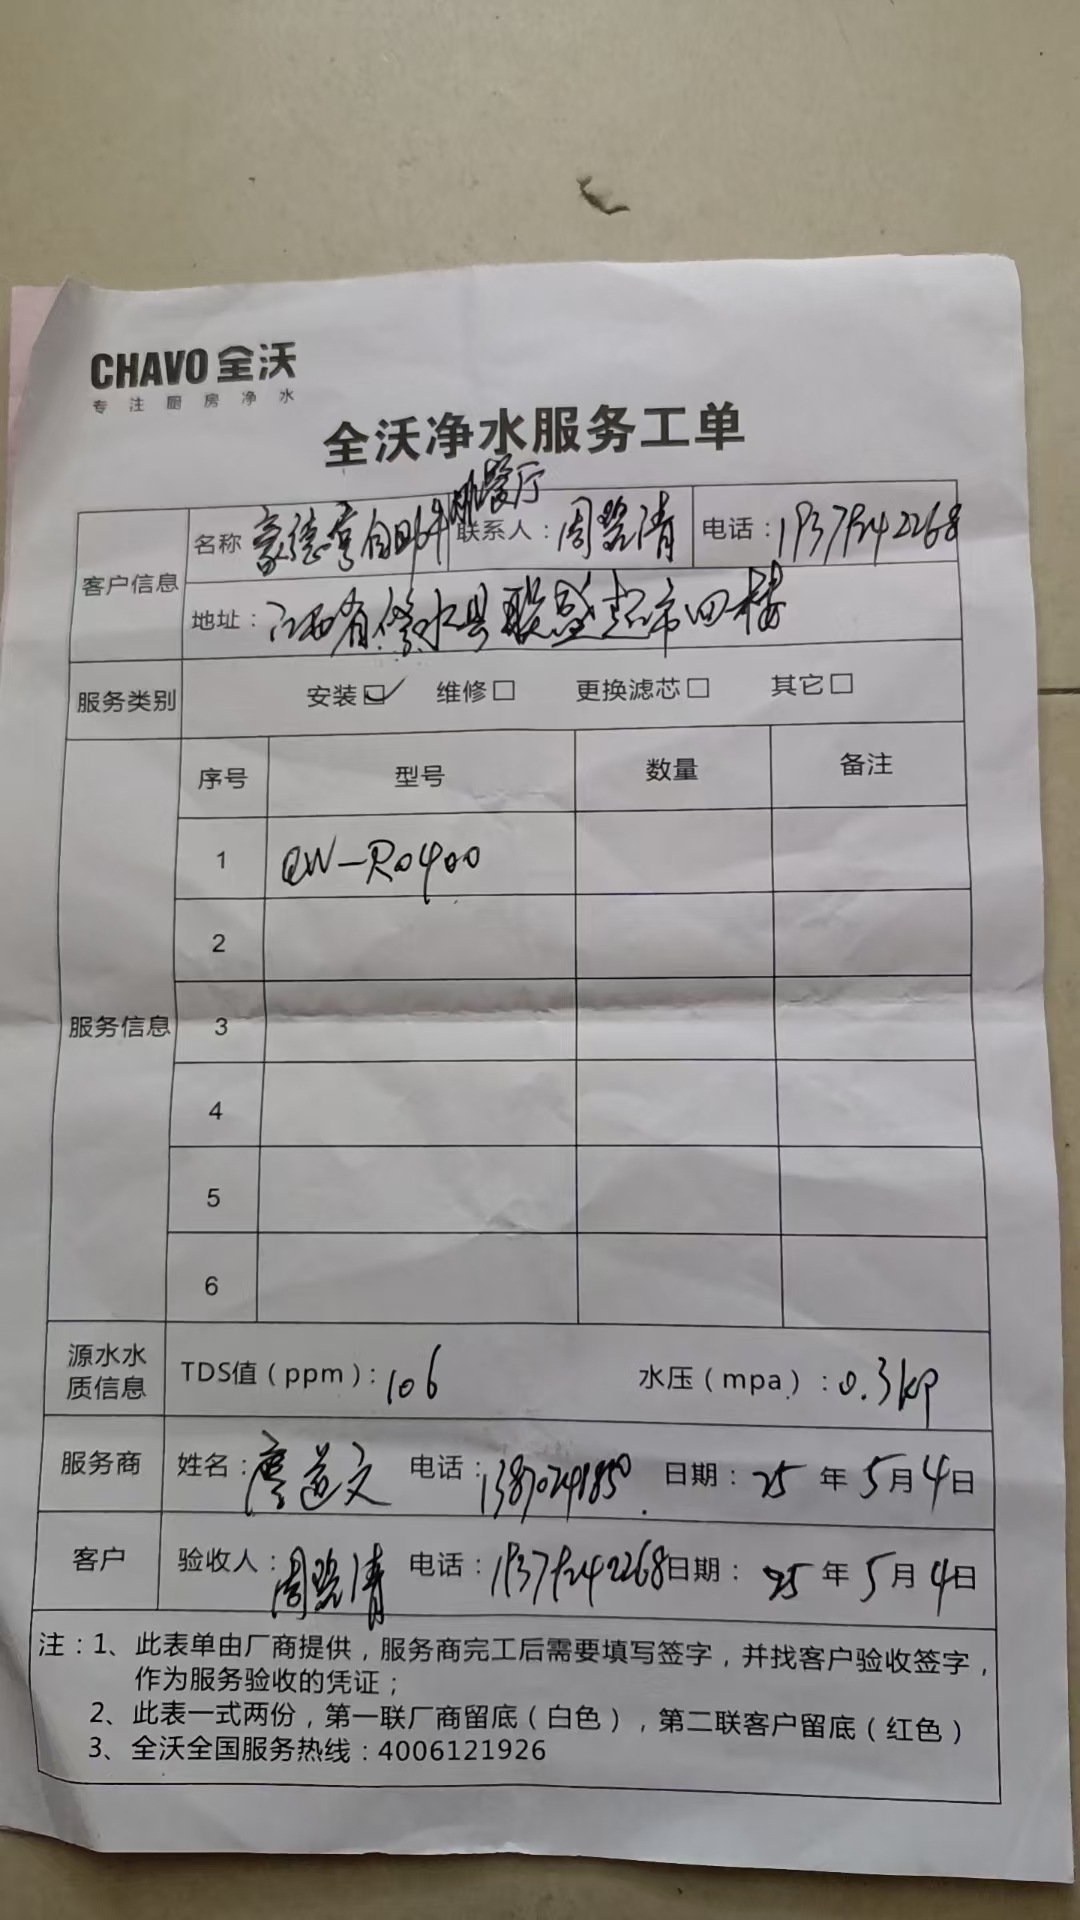 CHAVO 全沃
专注厨房净水
全沃净水服务工单
客户信息 名称 豪德亨自助餐厅 联系人：周 清 电话：
地址：江西省修水县联盛超市四楼
服务类别 安装☑ 维修□ 更换滤芯□ 其它□
服务信息 序号 型号 数量 备注
1 QW-RO400
2
3
4
5
6
源水水质信息 TDS值（ppm）：106 水压（mpa）：0.3kp
服务商 姓名：廖 文 电话：13870241850 日期：25年5月4日
客户 验收人：周 清 电话： 日期：25年5月4日
注：1、此表单由厂商提供，服务商完工后需要填写签字，并找客户验收签字，
作为服务验收的凭证；
2、此表一式两份，第一联厂商留底（白色），第二联客户留底（红色）
3、全沃全国服务热线：4006121926